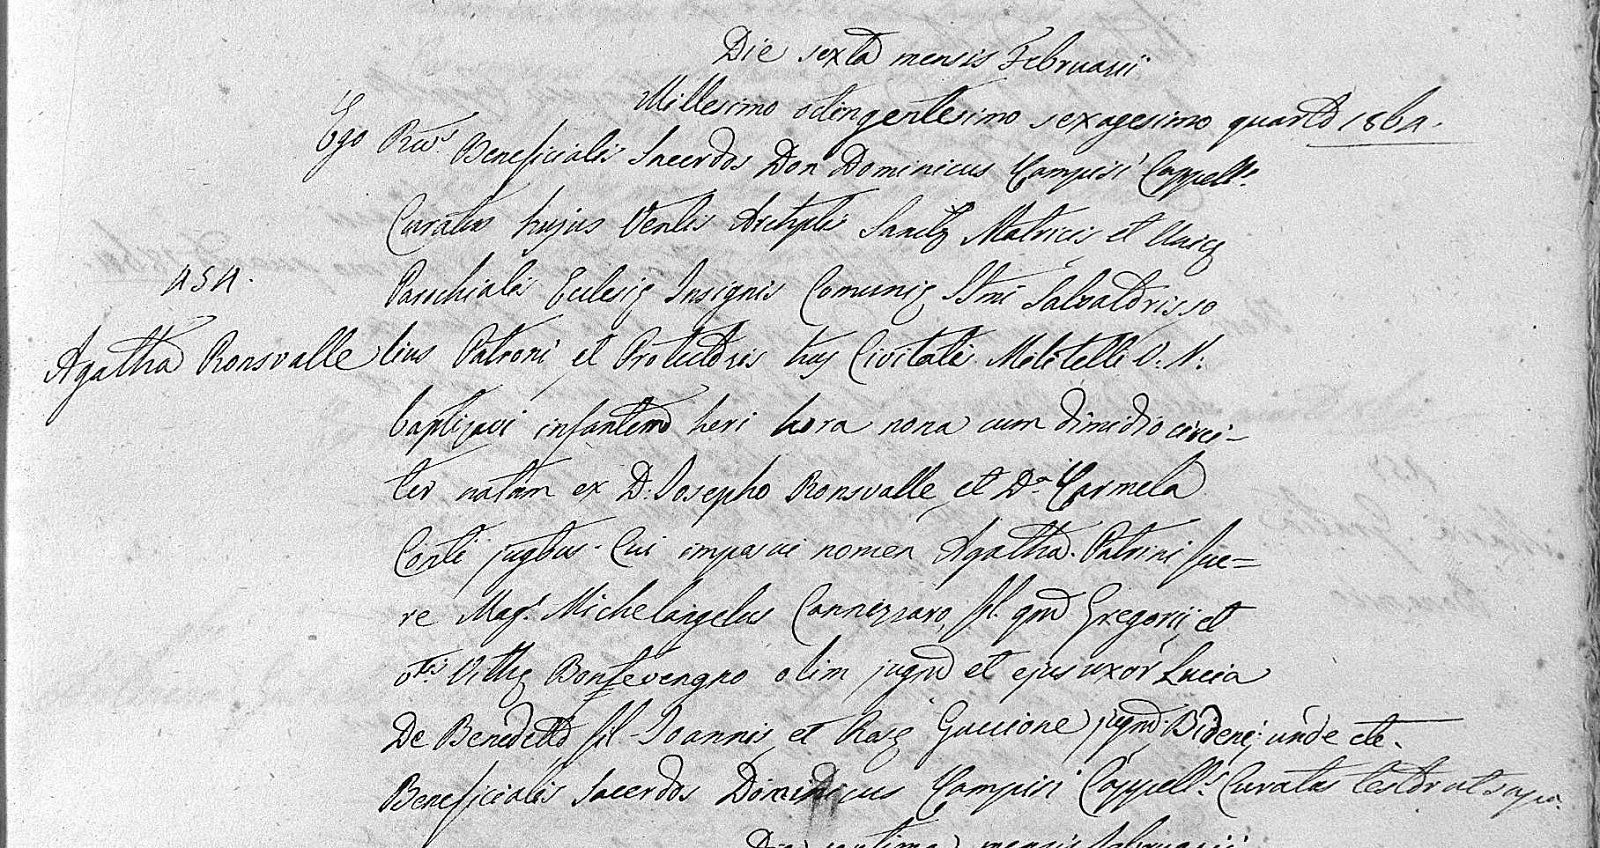 Die sexta mensis Februarii
Millesimo octingentesimo sexagesimo quarto 1864.
Ego Rus. Beneficialis Sacerdos Don Dominicus Campisi Cappells.
Curatus hujus Venlis Archiplis Sanctę Matricis et Unicę
454.
Parochialis Ecclesię Insignis Comunię SSmi Salvatoris so
Agatha Ronsvalle
lius Patroni et Protectoris huj Civitatis Militelli V. N.
baptizavi infantem heri hora nona cum dimidio circi-
ter natam ex D. Josepho Ronsvalle et Da. Carmela
Conti jugbus. Cui imposui nomen Agatha. Patrini fue=
re Magr. Michelangelus Cannizzaro, fil. qm Gregorii, et
Vittę Bontevengno olim jugm et ejus uxor Lucia
De Benedetto fil. Joannis et Rosę Guccione jugm Bideni; unde etc.
Beneficialis Sacerdos Dominicus Campisi Cappells. Curatus testor ut supa.
mensis Februarii